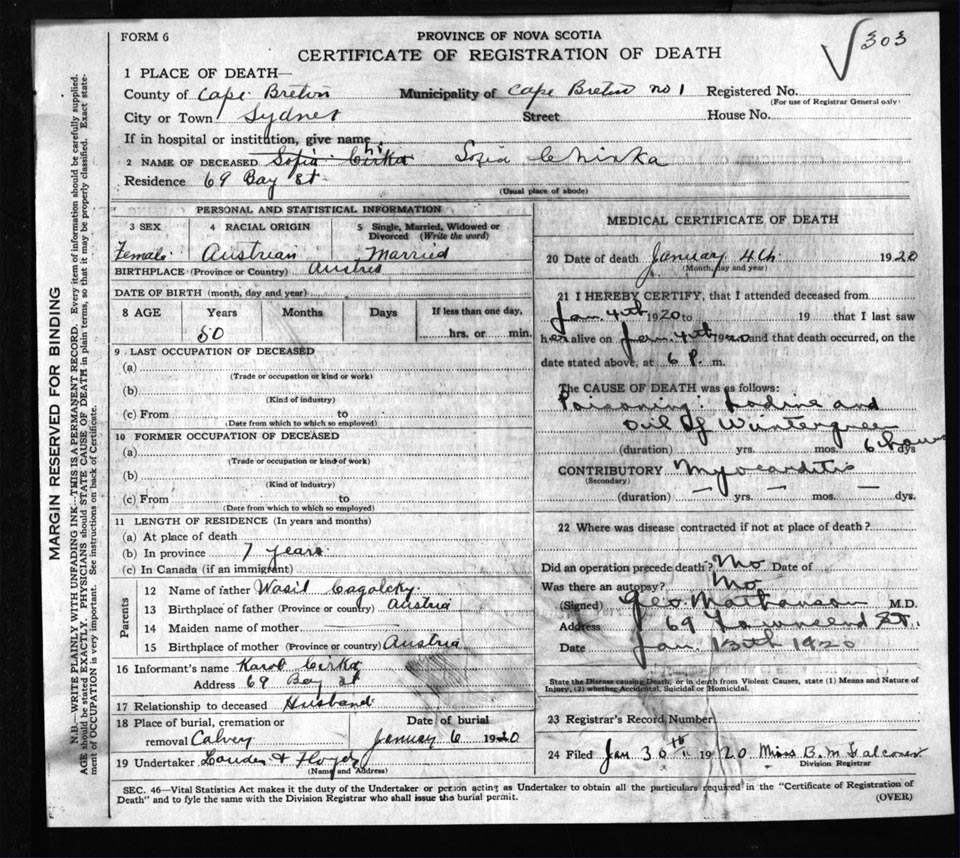 FORM 6
PROVINCE OF NOVA SCOTIA
CERTIFICATE OF REGISTRATION OF DEATH
303
1 PLACE OF DEATH—
County of Cape Breton Municipality of Cape Breton no 1 Registered No.
(For use of Registrar General only)
City or Town Sydney Street House No.
If in hospital or institution, give name
2 NAME OF DECEASED Sofia Cirka Sofia Chirka
Residence 69 Bay St
(Usual place of abode)
PERSONAL AND STATISTICAL INFORMATION
3 SEX 4 RACIAL ORIGIN 5 Single, Married, Widowed or Divorced (Write the word)
Female Austrian Married
BIRTHPLACE (Province or Country)
DATE OF BIRTH (month, day and year)
8 AGE Years Months Days If less than one day,
50 hrs. or min.
9 LAST OCCUPATION OF DECEASED
(a)
(Trade or occupation or kind or work)
(b)
(Kind of industry)
(c) From to
(Date from which to which so employed)
10 FORMER OCCUPATION OF DECEASED
(a)
(Trade or occupation or kind of work)
(b)
(Kind of industry)
(c) From to
(Date from which to which so employed)
11 LENGTH OF RESIDENCE (In years and months)
(a) At place of death
(b) In province 7 years
(c) In Canada (if an immigrant)
Parents
12 Name of father Wasil
13 Birthplace of father (Province or country) Austria
14 Maiden name of mother
15 Birthplace of mother (Province or country) Austria
16 Informant's name Karol Cirka
Address 69 Bay St
17 Relationship to deceased Husband
18 Place of burial, cremation or removal Calvery
Date of burial
January 6 1920
19 Undertaker
(Name and Address)
MEDICAL CERTIFICATE OF DEATH
20 Date of death January 4th 1920
(Month, day and year)
21 I HEREBY CERTIFY, that I attended deceased from
Jan. 4th 1920 to 19 that I last saw
her alive on Jan. 4th 1920 and that death occurred, on the
date stated above, at 6 P. m.
The CAUSE OF DEATH was as follows:
Poisoning: Iodine and
Oil of Wintergreen
(duration) yrs. mos. 6 hours dys
CONTRIBUTORY Myocarditis
(Secondary)
(duration) — yrs. — mos. — dys.
22 Where was disease contracted if not at place of death?
Did an operation precede death? No Date of
Was there an autopsy? No
(Signed) Geo. M.D.
Address 69 Townsend St.
Date Jan. 13th 1920
State the Disease causing Death, or in death from Violent Causes, state (1) Means and Nature of
Injury, (2) whether Accidental, Suicidal or Homicidal.
23 Registrar's Record Number
24 Filed Jan 30th 1920 Miss B. M. Falconer
Division Registrar
SEC. 46—Vital Statistics Act makes it the duty of the Undertaker or person acting as Undertaker to obtain all the particulars required in the "Certificate of Registration of
Death" and to fyle the same with the Division Registrar who shall issue the burial permit.
(OVER)
MARGIN RESERVED FOR BINDING
N.B.—WRITE PLAINLY WITH UNFADING INK—THIS IS A PERMANENT RECORD. Every item of information should be carefully supplied.
AGE should be stated EXACTLY. PHYSICIANS should STATE CAUSE OF DEATH in plain terms, so that it may be properly classified. Exact state-
ment of OCCUPATION is very important. See instructions on back of Certificate.